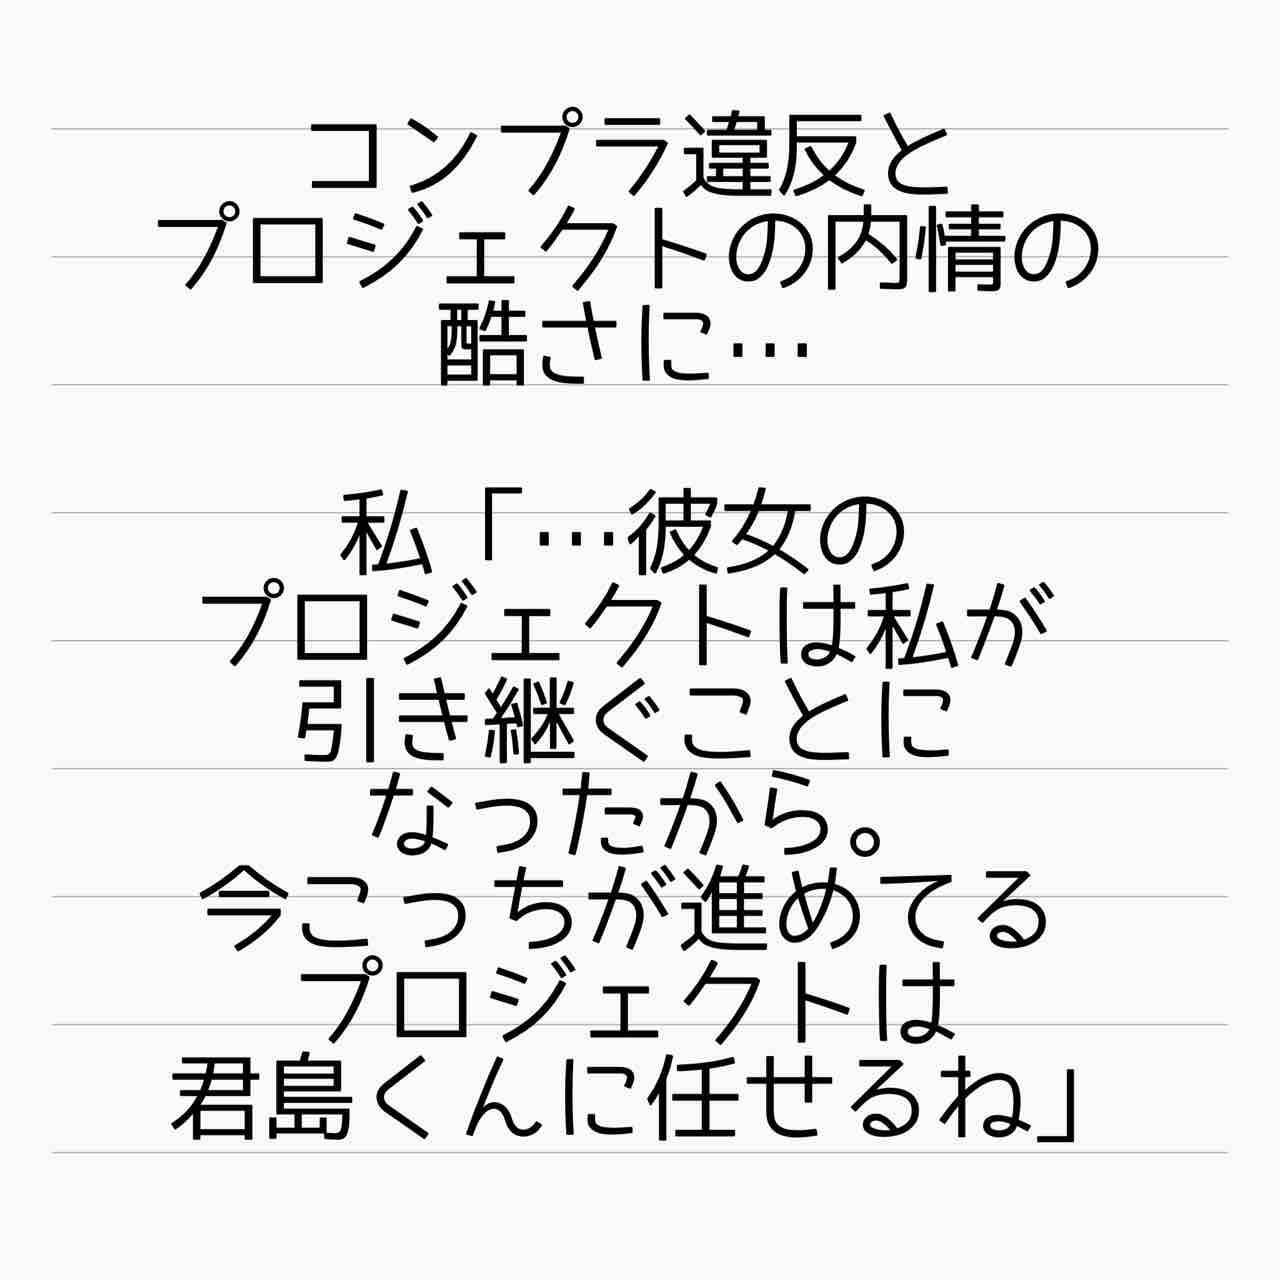 コンプラ違反と
プロジェクトの内情の
酷さに…
私「…彼女の
プロジェクトは私が
引き継ぐことに
なったから。
今こっちが進めてる
プロジェクトは
君島くんに任せるね」